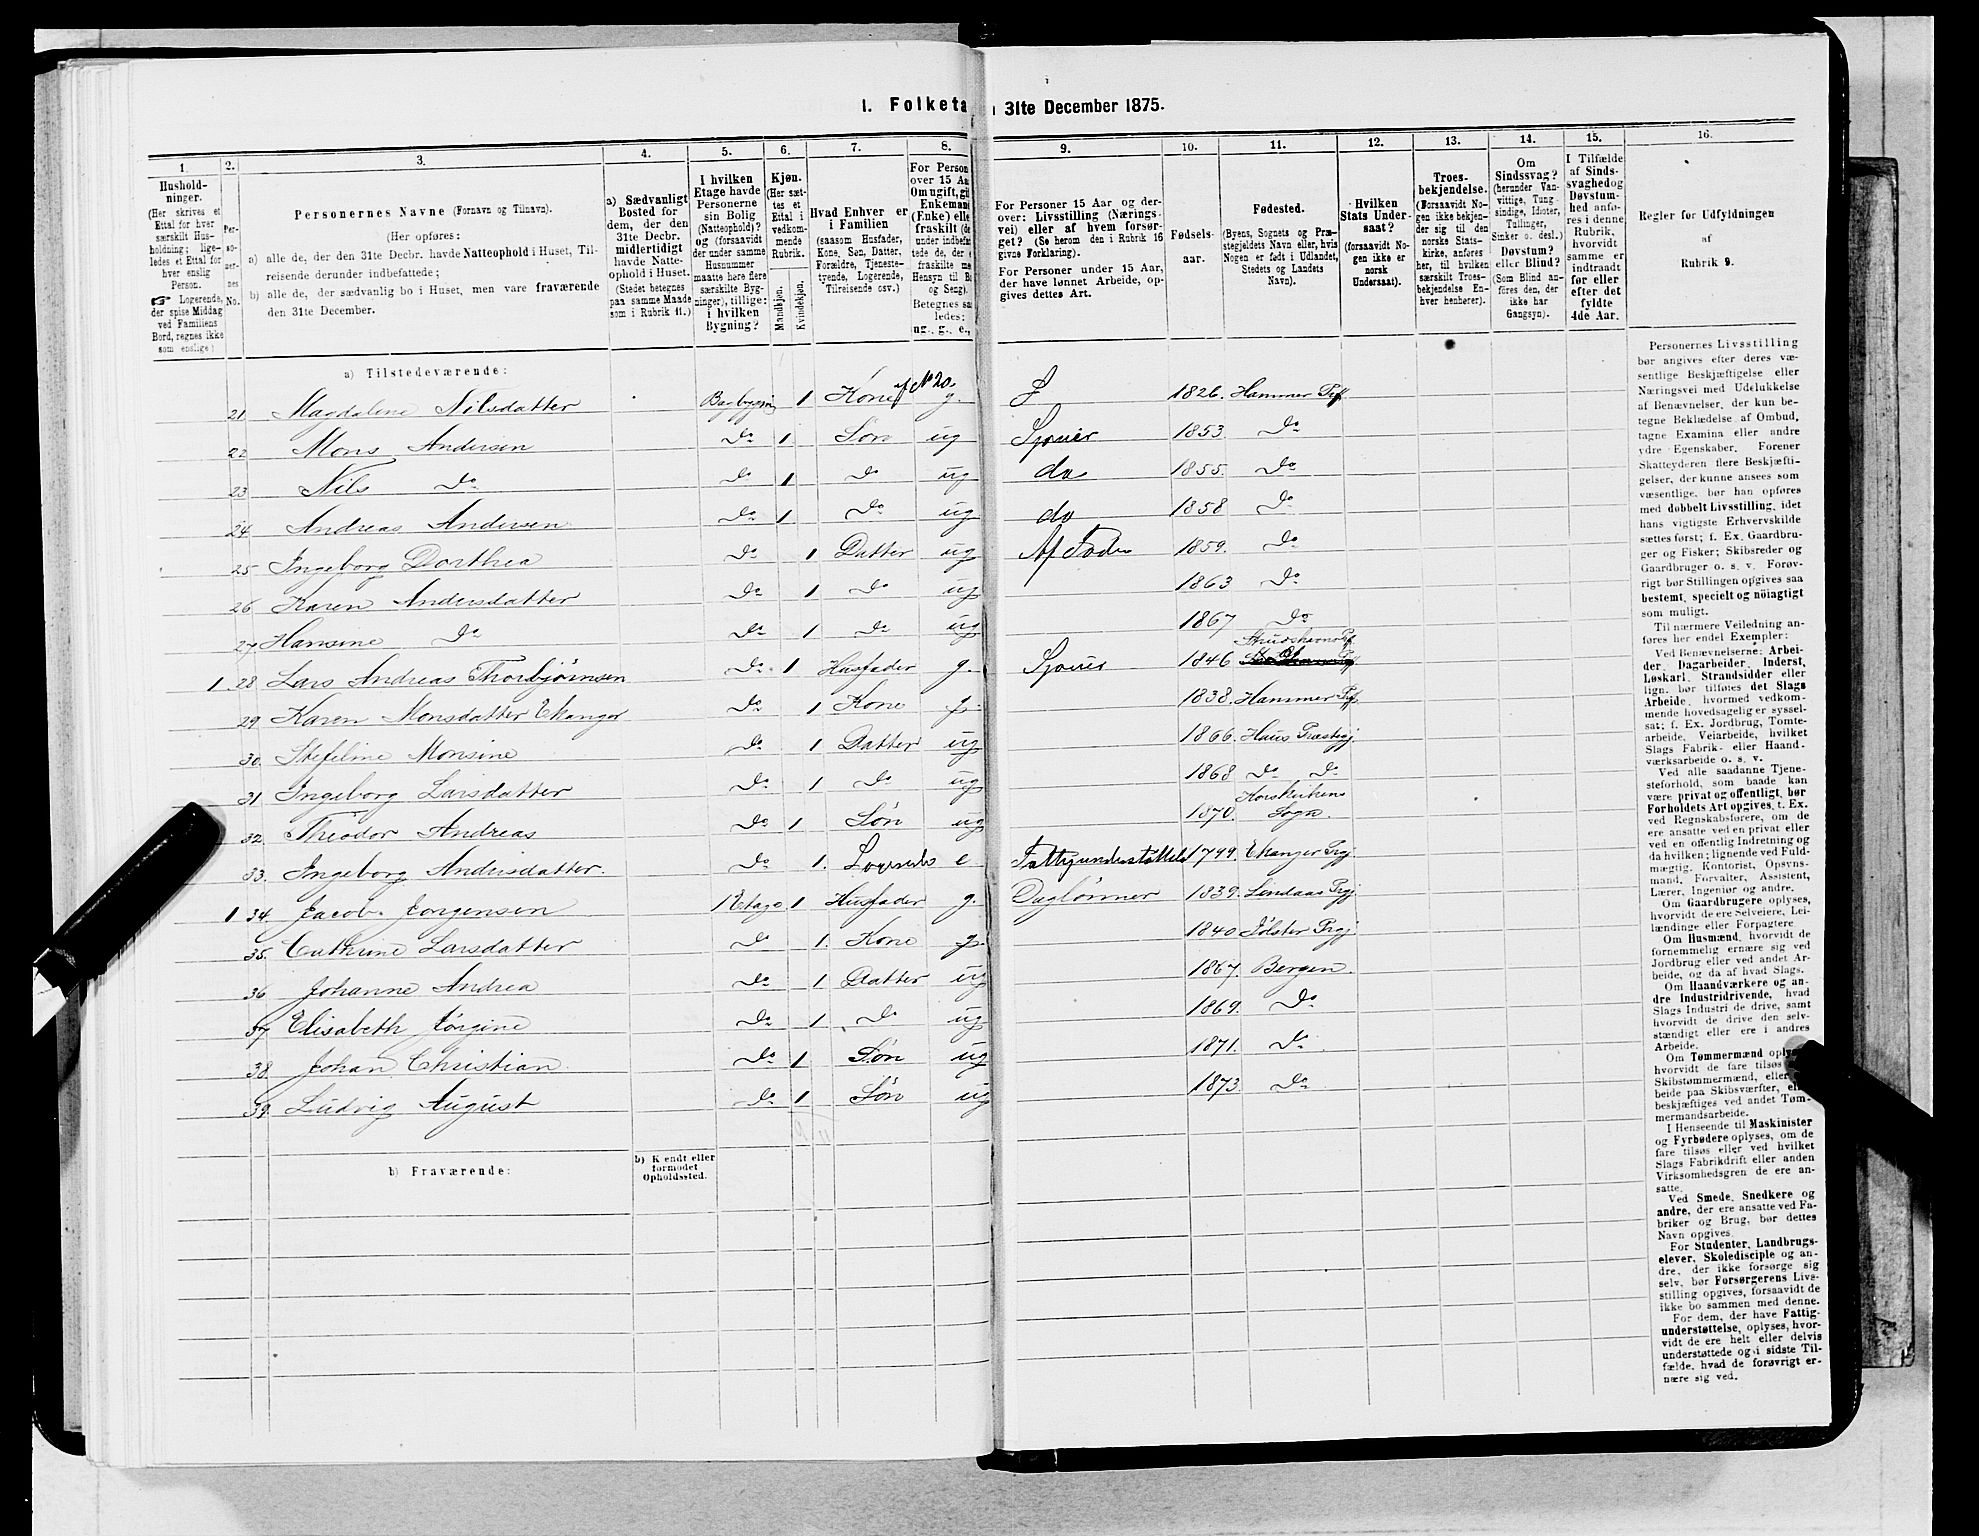 1. Folketa 31te December 1875.
1.
2.
3.
4.
5.
6.
7.
8.
9.
10.
11.
12.
13.
14.
15.
16.
Hushold-
ninger.
(Her skrives et
Ettal for hver
særskilt Hus-
holdning; lige-
ledes et Ettal for
hver enslig
Person.
Logerende,
der spise Middag
ved Familiens
Bord, regnes ikke
som enslige)
Per-
so-
ner-
nes
No.
Personernes Navne (Fornavn og Tilnavn).
(Her opføres:
a) alle de, der den 31te Decbr. havde Natteophold i Huset, Til-
reisende derunder indbefattede;
b) alle de, der sædvanlig bo i Huset, men vare fraværende
den 31te December.
a) Sædvanligt
Bosted for
dem, der den
31te Decbr.
midlertidigt
havde Natte-
ophold i Huset.
(Stedet betegnes
paa samme Maade
som i Rubrik 11.)
I hvilken
Etage havde
Personerne
sin Bolig
(Natteophold)?
og (forsaavidt
der under samme
Husnummer
maatte høre flere
særskilte Byg-
ninger), tillige:
i hvilken
Bygning?
Kjøn.
(Her sæt-
tes et
Ettal i
vedkom-
mende
Rubrik.
Mandkjøn.
Kvindekjøn.
Hvad Enhver er
i Familien
(saasom Husfader,
Kone, Søn, Datter,
Forældre, Tjeneste-
tyende, Logerende,
Tilreisende osv.)
For Person
over 15 Aa
Om ugift, gi
Enkeman
(Enke) elle
fraskilt (de
under indbefa
tede de, der e
fraskilte me
Hensyn til B
og Seng).
Betegnes saa
ledes:
ug., g., e.,
For Personer 15 Aar og der-
over: Livsstilling (Nærings-
vei) eller af hvem forsør-
get? (Se herom den i Rubrik 16
givne Forklaring).
For Personer under 15 Aar,
der have lønnet Arbeide, op-
gives dettes Art.
Fødsels-
aar.
Fødested.
(Byens, Sognets og Præ-
stegjeldets Navn eller, hvis
Nogen er født i Udlandet,
Stedets og Landets
Navn).
Hvilken
Stats Under-
saat?
(forsaavidt No-
gen ikke er
norsk
Undersaat).
Troes-
bekjendelse.
(Forsaavidt No-
gen ikke bekjen-
der sig til den
norske Stats-
kirke, anføres
her, til hvilken
særskilt Troes-
bekjendelse En-
hver henhører).
Om
Sindssvag?
(herunder Van-
vittige, Tung
sindige, Idioter,
Tullinger,
Sinker o. desl.)
Døvstum?
eller Blind?
(Som Blind an-
føres den, der
ikke har
Gangsyn).
I Tilfælde
af Sinds-
svaghedog
Døvstum-
hed anfø-
res i denne
Rubrik,
hvorvidt
samme er
indtraadt
før eller
efter det
fyldte
4de Aar.
Regler før Udfyldningen
af
Rubrik 9.
a) Tilstedeværende:
21 Magdalene Nilsdatter Bagbygni 1 Kone af No 20. g. 1826. Hammer Prf
22 Mons Andersen Do 1 Søn ug Sjouer 1853. Do
23 Nils Do Do 1 Do ug do 1855. Do
24 Andreas Andersen Do 1 Do ug do 1858 Do
25 Ingeborg Dorthea Do 1 Datter ug Af Fader 1859. Do
26 Karen Andersdatter Do 1 Do ug 1863 Do
27 Hansine Do Do 1 Do ug 1867 Do
1. 28 Lars Andreas Thorbjørnsen Do 1 Husfader g. Sjouer 1846
29 Karen Monsdatter Ekanger Do 1 Kone g. 1838. Hammer Prf
30. Stefeline Monsine Do 1 Datter ug 1866. Haus Præstegj.
31 Ingeborg Larsdatter Do 1 Do ug 1868 Do Do
32. Theodor Andreas Do 1 Søn ug 1870. Horskirkens Sogn.
33. Ingeborg Andersdatter. Do 1. e Fattigunderstøttelse 1799. Ekanger Prgj
1 34 Jacob Jørgensen 1 Etage 1 Husfader g. Daglønner 1839. Lindaas Prgj
35. Cathrine Larsdatter Do 1. Kone g. 1840 Jølster Prgj
36 Johanne Andrea Do 1 Datter ug 1867. Bergen.
37 Elisabeth Jørgine Do 1 Do ug 1869. Do
38 Johan Christian Do 1 Søn ug 1871. Do
39. Ludvig August Do 1 Søn ug 1873. Do
b) Fraværende:
b) Kendt eller
formodet
Opholdssted.
Personernes Livsstilling
bør angives efter deres væ-
sentlige Beskjæftigelse eller
Næringsvei med Udelukkelse
af Benævnelser, der kun be-
tegne Beklædelse af Ombud,
tagne Examina eller andre
ydre Egenskaber. Forener
Skatteyderen flere Beskjæfti-
gelser, der kunne ansees som
væsentlige, bør han opføres
med dobbelt Livsstilling, idet
hans vigtigste Erhvervskilde
sættes først; f. Ex. Gaardbru-
ger og Fisker; Skibsreder og
Gaardbruger o. s. v. Forøv-
rigt bør Stillingen opgives saa
bestemt, specielt og nöiagtigt
som muligt.
Til nærmere Veiledning an-
føres her endel Exempler:
Ved Benævnelserne: Arbei-
der, Dagarbeider, Inderst,
Løskarl, Strandsidder eller
lign. bør tilføies det Slags
Arbeide, hvormed vedkom-
mende hovedsagelig er syssel-
sat; f. Ex. Jordbrug, Tomte-
arbeide, Veiarbeide, hvilket
Slags Fabrik- eller Haand-
værksarbeide o. s. v.
Ved alle saadanne Tjene-
steforhold, som baade kan
være privat og offentligt, bør
Forholdets Art opgives, t. Ex.
ved Regnskabsførere, om de
ere ansatte ved en privat eller
ved en offentlig Indretning og
da hvilken; lignende ved Fuld-
mægtig, Kontorist, Opsyns-
mand, Forvalter, Assistent,
Lærer, Ingeniør og andre.
Om Gaardbrugere oplyses,
hvorvidt de ere Selveiere, Lei-
lændinge eller Forpagtere
Om Husmænd, hvorvidt de
fornemmelig ernære sig ved
Jordbrug eller ved andet Ar-
beide, og da af hvad Slags.
Om Haandværkere og an-
dre Industridrivende, hvad
Slags Industri de drive, samt
hvorvidt de drive den selv-
stændigt eller ere i andres
Arbeide.
Om Tømmermænd oply
hvorvidt de fare tilsøs
Skibstømmermænd, eller
beide paa Skibsværfter, ell
beskjæftiges ved andet Tøm-
mermandsarbeide.
I Henseende til Maskinister
og Fyrbødere oplyses, om de
fare tilsøs eller ved hvilket
Slags Fabrikdrift eller anden
Virksomhedsgren de ere an-
satte.
Ved Smede, Snedkere og
andre, der ere ansatte ved Fa-
briker og Brug, bør dettes
Navn opgives.
For Studenter, Landbrugs-
elever, Skoledisciple og an-
dre, der ikke forsørge sig
selv, bør Forsørgerens Livs-
stilling opgives, forsaavidt de
ikke bo sammen med denne.
For dem, der have Fattig-
understøttelse, oplyses, hvor-
vidt de ere helt eller delvis
understøttede og i sidste Til-
fælde, hvad de forøvrigt er-
nære sig ved.